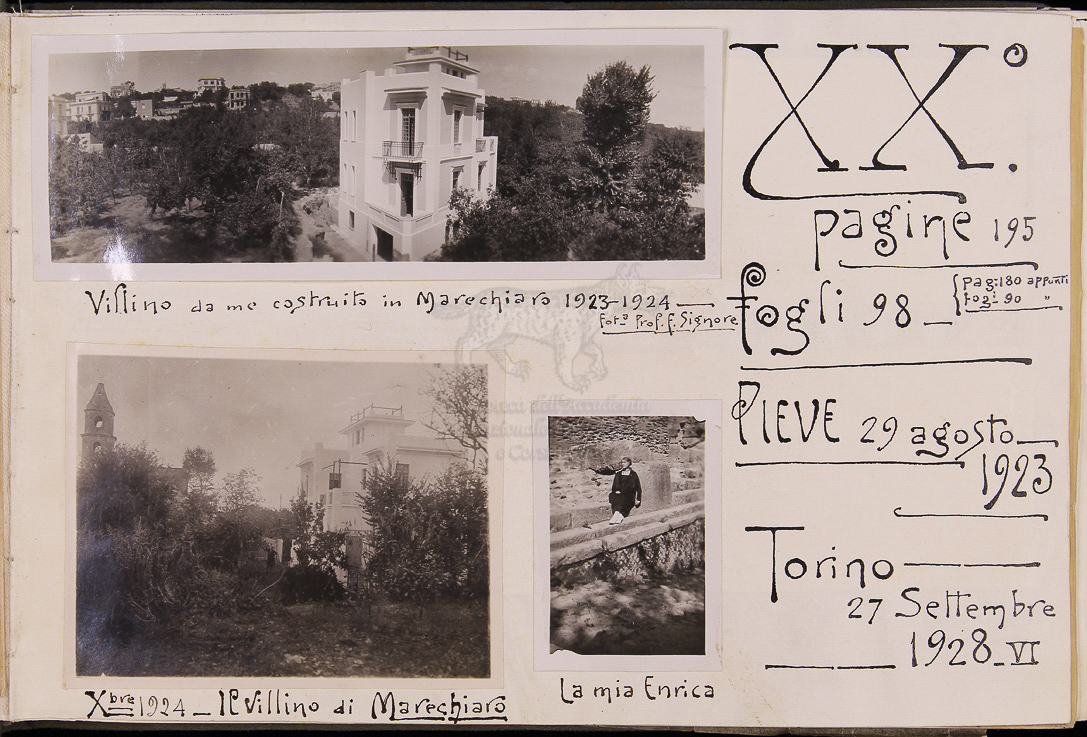 Villino da me costruito in Marechiaro 1923-1924 —
fotª Prof. F. Signore
Xbre 1924 _ Il Villino di Marechiaro
La mia Enrica
XX°.
pagine 195
fogli 98 _
{pag: 180 appunti
fogi- 90 "
PIEVE 29 agosto
1923
Torino
27 Settembre
1928_VI